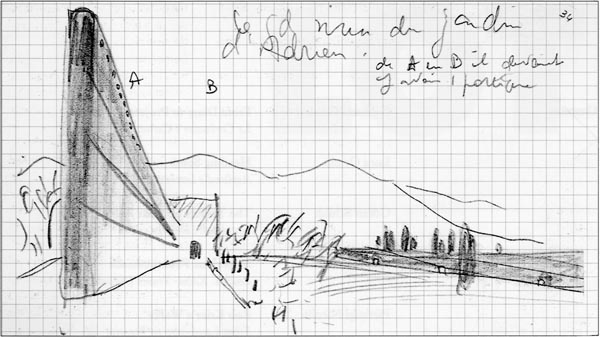 le gd mur du jardin
d'Adrien.
34
de A en B il devait
y avoir 1 portique
A
B